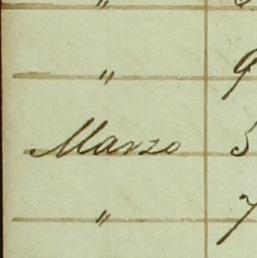 "
" 9
Marzo 5
" 7